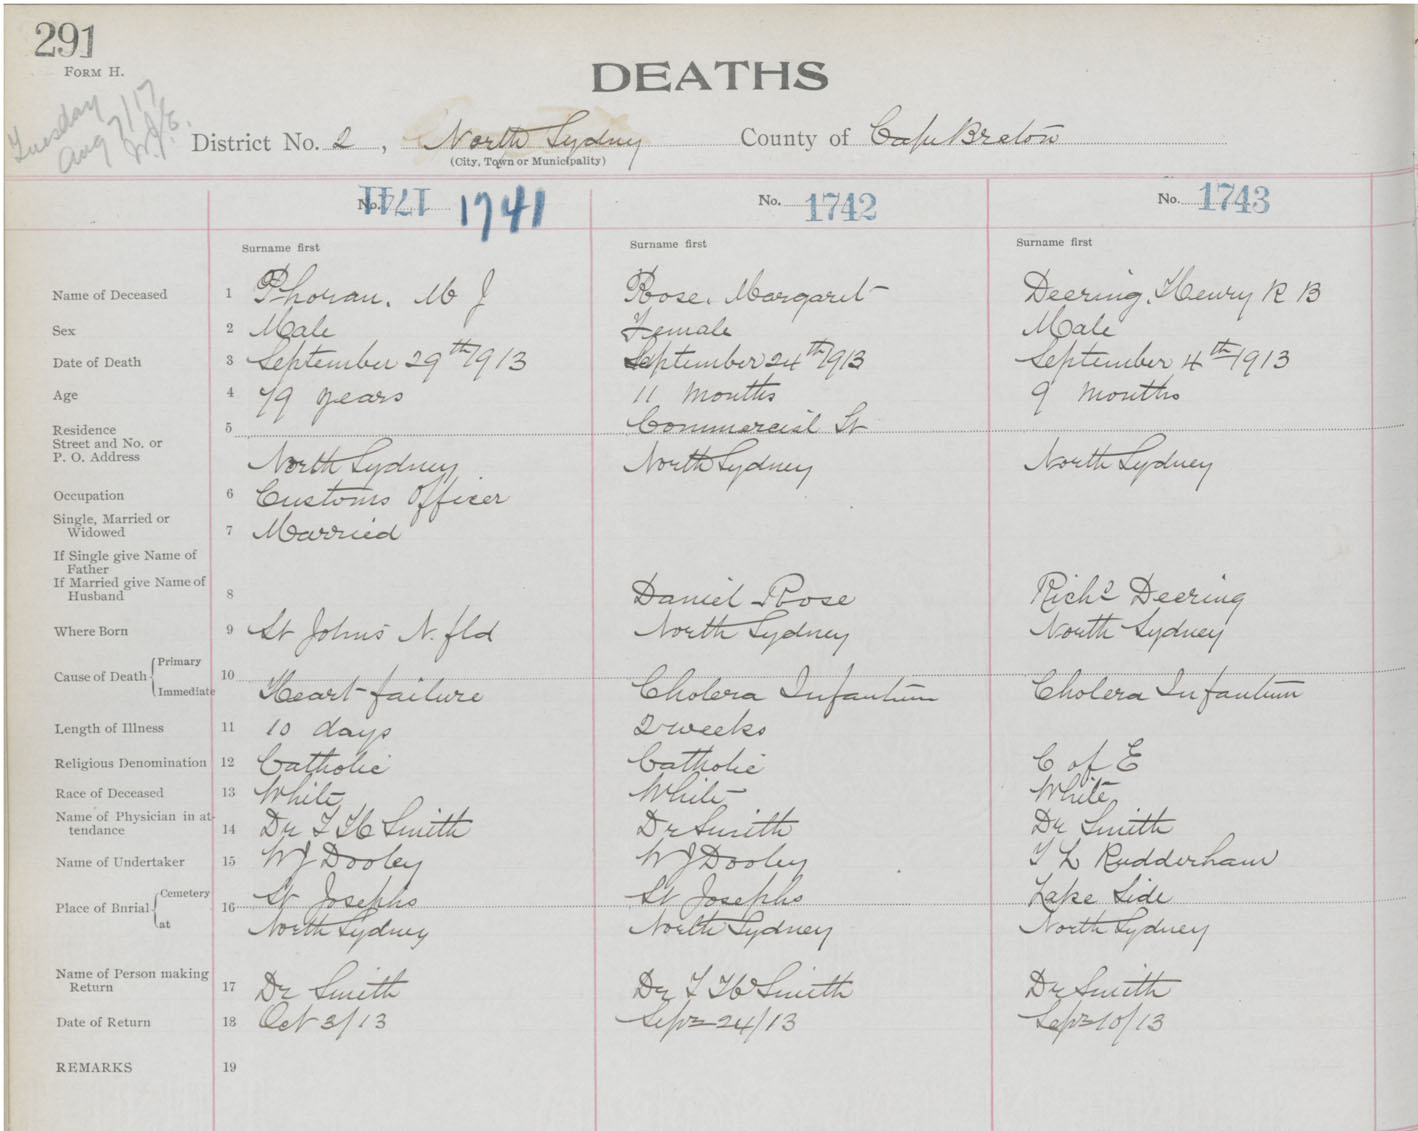 291
FORM H.
Tuesday
Aug 7/17
DEATHS
District No. 2, North Sydney County of Cape Breton
(City, Town or Municipality)
No. 1741 1741 No. 1742 No. 1743
Surname first Surname first Surname first
Name of Deceased 1 Phoran, M J Rose, Margaret Deering, Henry R B
Sex 2 Male Female Male
Date of Death 3 September 29th 1913 September 24th 1913 September 4th 1913
Age 4 79 years 11 months 9 months
Residence 5 Commercial St
Street and No. or
P. O. Address North Sydney North Sydney North Sydney
Occupation 6 Customs Officer
Single, Married or
Widowed 7 Married
If Single give Name of
Father
If Married give Name of
Husband 8 Daniel Rose Richd Deering
Where Born 9 St Johns N.fld North Sydney North Sydney
Cause of Death Primary 10
Immediate Heart failure Cholera Infantum Cholera Infantum
Length of Illness 11 10 days 2 weeks
Religious Denomination 12 Catholic Catholic C of E
Race of Deceased 13 White White White
Name of Physician in at-
tendance 14 Dr Smith Dr Smith Dr Smith
Name of Undertaker 15 W J Dooley W J Dooley Rudderham
Place of Burial Cemetery 16 St Josephs St Josephs Lake Side
at North Sydney North Sydney North Sydney
Name of Person making
Return 17 Dr Smith Dr Smith Dr Smith
Date of Return 18 Oct 3/13 Sept 24/13 Sept 10/13
REMARKS 19